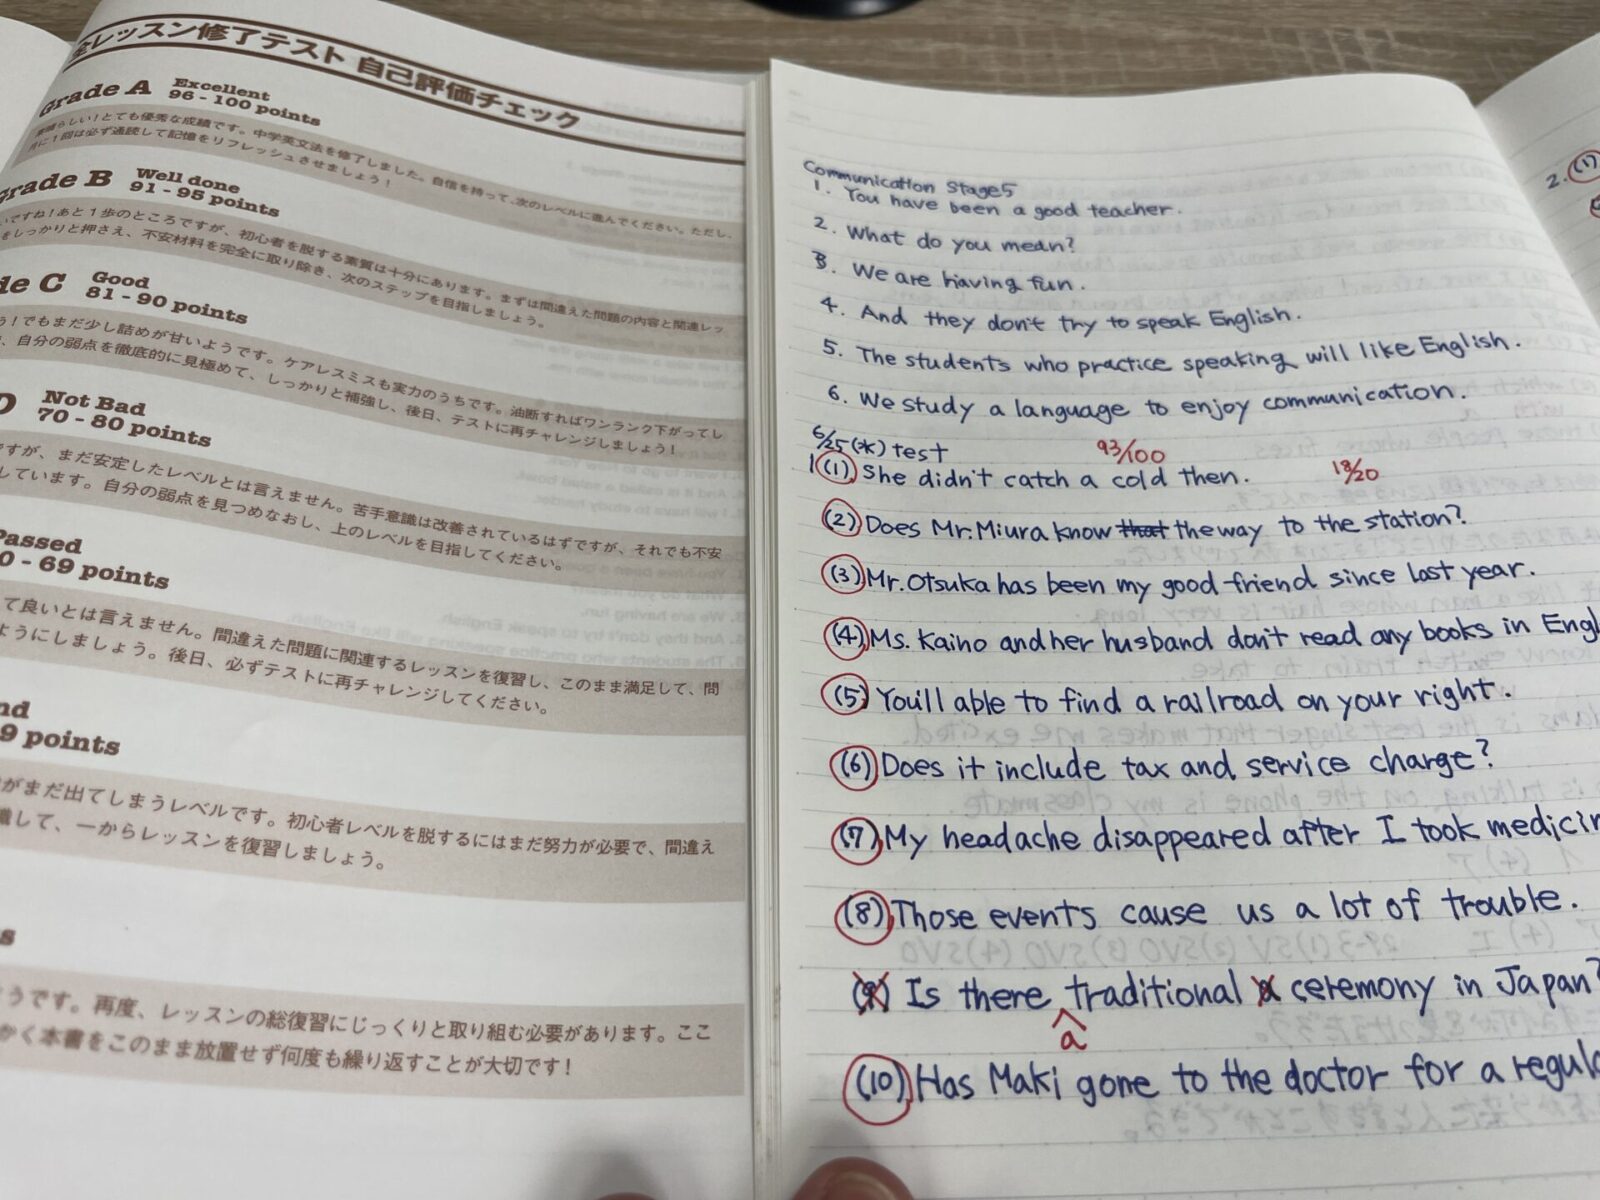 全レッスン修了テスト 自己評価チェック
Grade A Excellent
96 - 100 points
素晴らしい!とても優秀な成績です。中学英文法を修了しました。自信を持って、次のレベルに進んでください。ただし、
月に1回は必ず通読して記憶をリフレッシュさせましょう!
Grade B Well done
91 - 95 points
いですね!あと1歩のところですが、初心者を脱する素質は十分にあります。まずは間違えた問題の内容と関連レッ
をしっかりと押さえ、不安材料を完全に取り除き、次のステップを目指しましょう。
de C Good
81 - 90 points
う!でもまだ少し詰めが甘いようです。ケアレスミスも実力のうちです。油断すればワンランク下がってし
、自分の弱点を徹底的に見極めて、しっかりと補強し、後日、テストに再チャレンジしましょう!
D Not Bad
70 - 80 points
ですが、まだ安定したレベルとは言えません。苦手意識は改善されているはずですが、それでも不安
しています。自分の弱点を見つめなおし、上のレベルを目指してください。
Passed
0 - 69 points
て良いとは言えません。間違えた問題に関連するレッスンを復習し、このまま満足して、問
ようにしましょう。後日、必ずテストに再チャレンジしてください。
nd
9 points
がまだ出てしまうレベルです。初心者レベルを脱するにはまだ努力が必要で、間違え
識して、一からレッスンを復習しましょう。
s
うです。再度、レッスンの総復習にじっくりと取り組む必要があります。ここ
かく本書をこのまま放置せず何度も繰り返すことが大切です!
Communication Stage5
1. You have been a good teacher.
2. What do you mean?
3. We are having fun.
4. And they don't try to speak English.
5. The students who practice speaking will like English.
6. We study a language to enjoy communication.
6/25(木) test 93/100
1 (1) She didn't catch a cold then. 18/20
(2) Does Mr. Miura know that the way to the station?
(3) Mr. Otsuka has been my good friend since last year.
(4) Ms. Kaino and her husband don't read any books in Engl
(5) You'll able to find a railroad on your right.
(6) Does it include tax and service charge?
(7) My headache disappeared after I took medicin
(8) Those events cause us a lot of trouble.
(9) Is there traditional a ceremony in Japan?
a
(10) Has Maki gone to the doctor for a regul
2. (1)